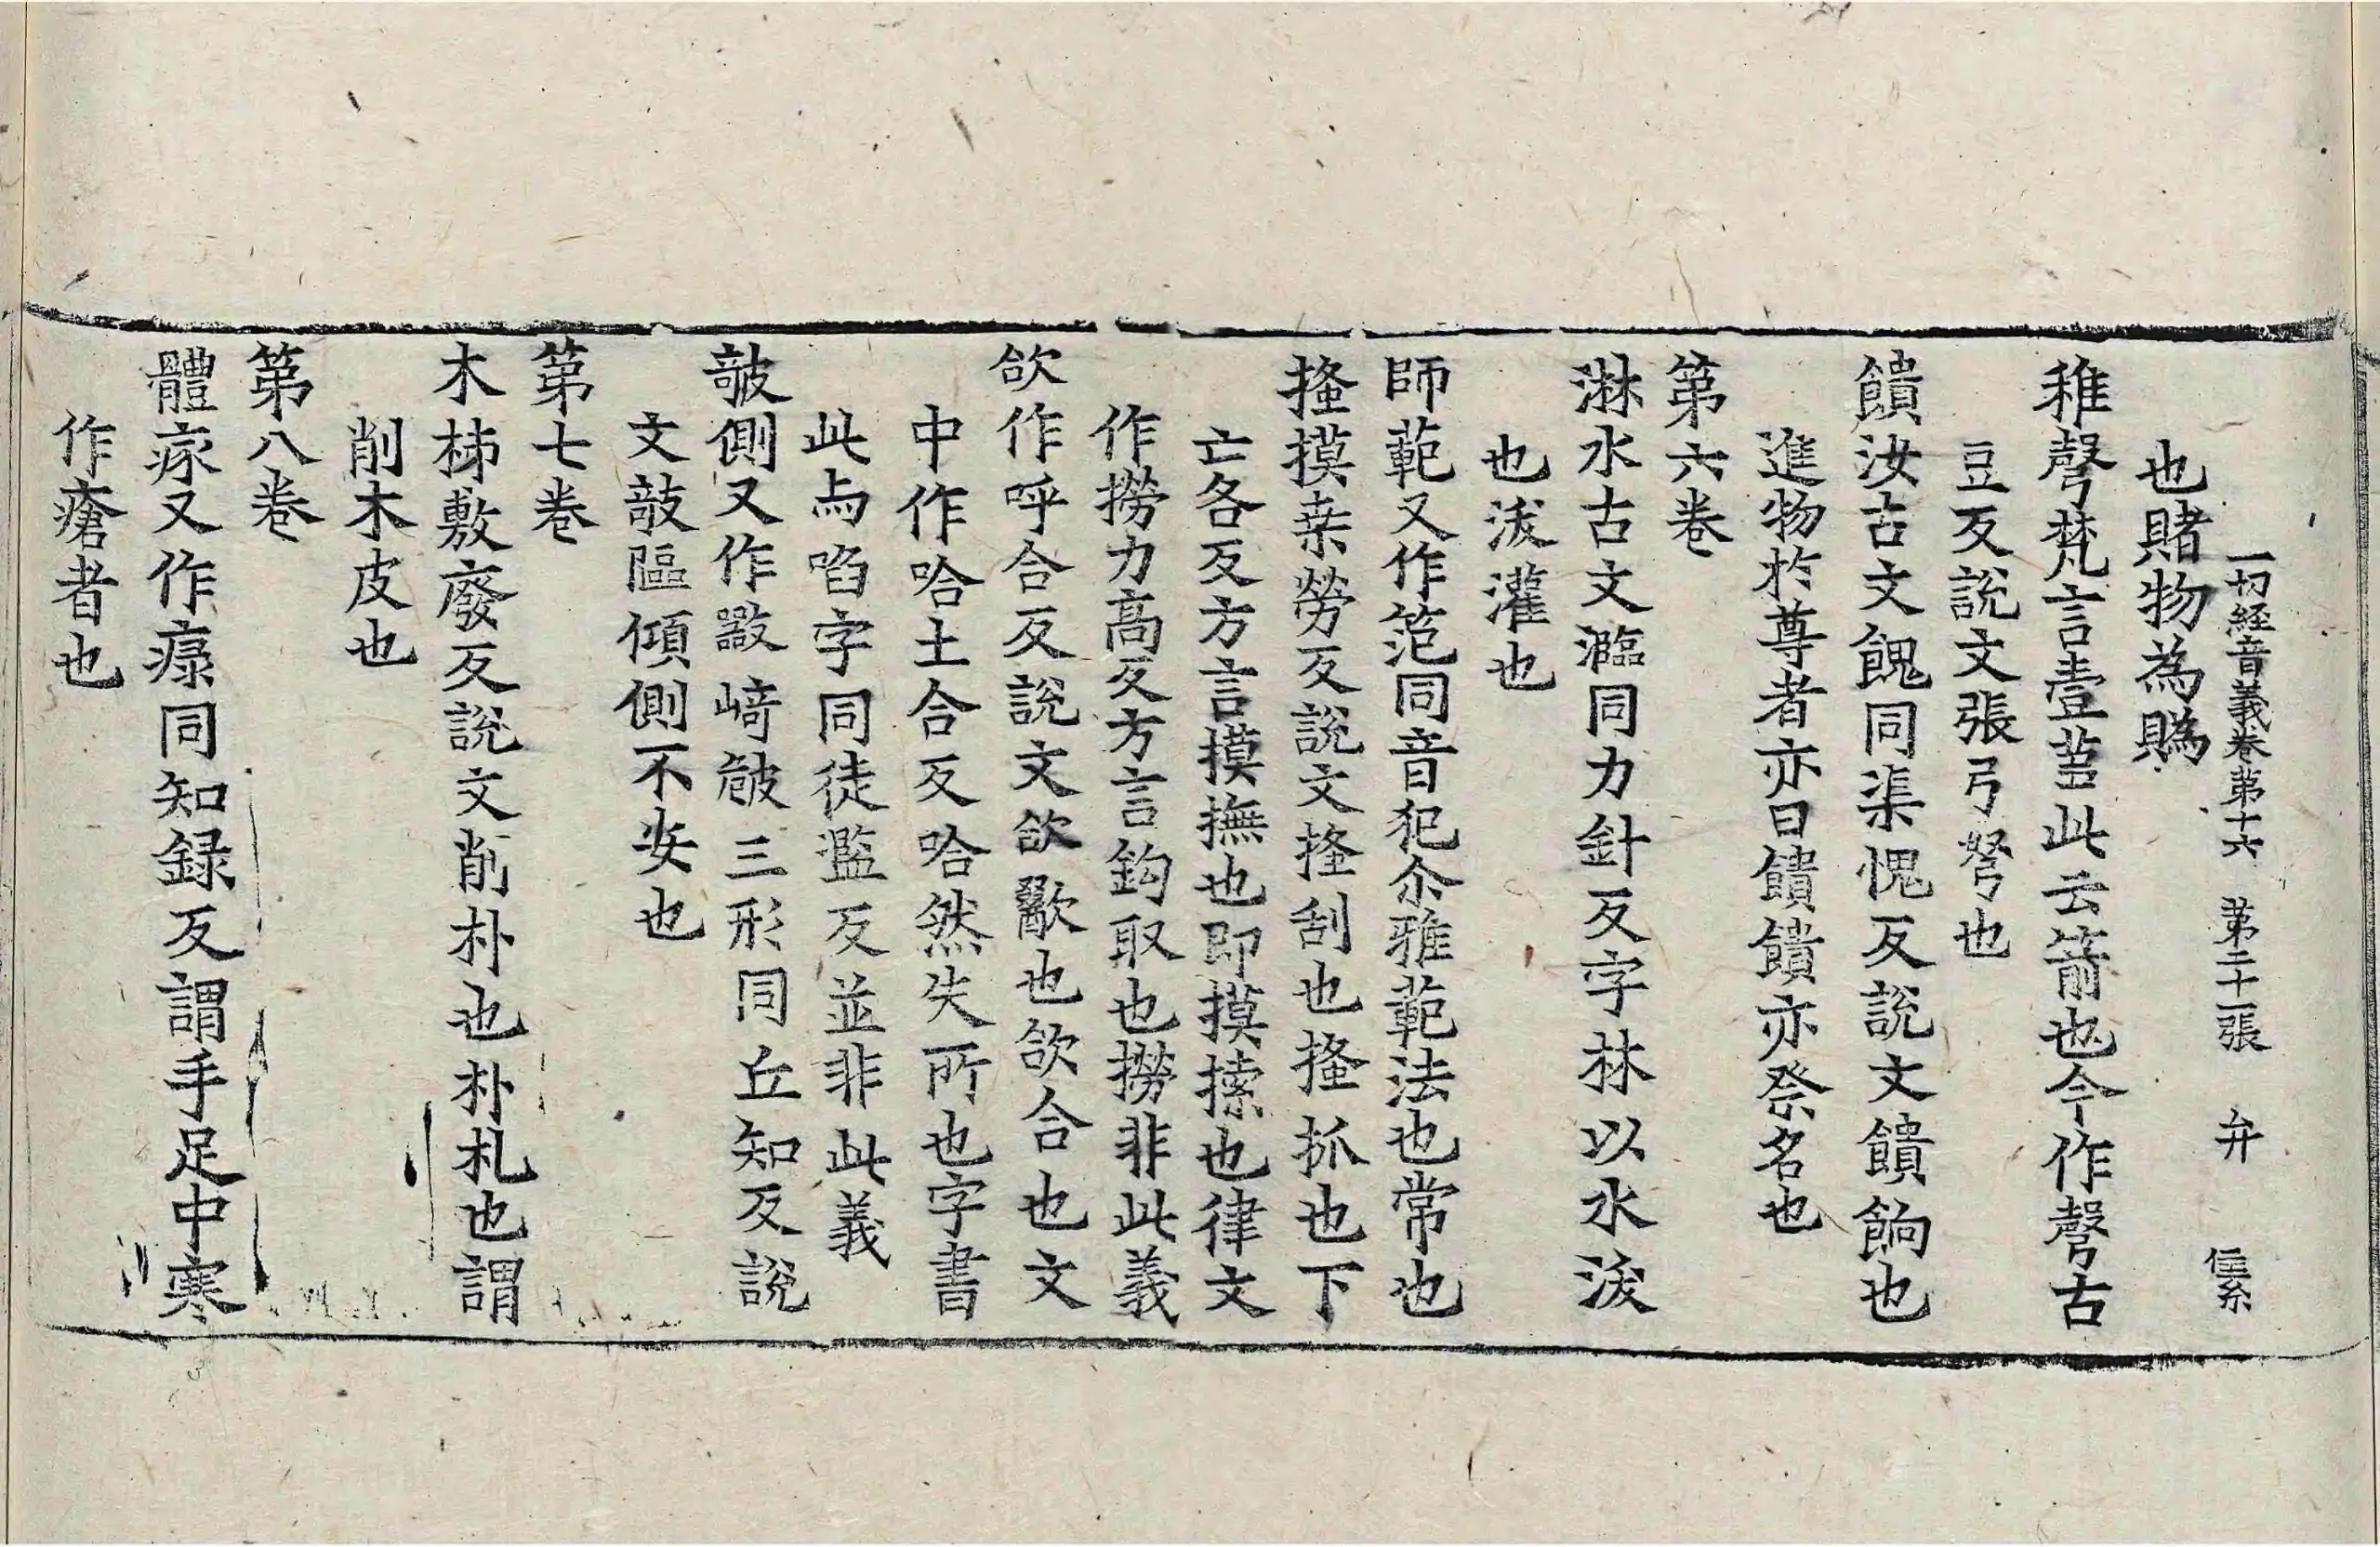 一切經音義卷第十六 第二十一張 弁 信系
也賭物為賜
稚彀梵言壹䓘此云箭也今作彀古
豆反說文張弓弩也
饋汝古文餽同渠愧反說文饋餉也
進物於尊者亦曰饋饋亦祭名也
第六卷
淋水古文灖同力針反字林以水沃
也沃灌也
師範又作笵同音犯尒雅範法也常也
搔摸桒勞反說文搔刮也搔抓也下
亡各反方言摸撫也即摸㨞也律文
作撈力高反方言鈎取也撈非此義
欱作呼合反說文欱歠也欱合也文
中作哈土合反哈然失所也字書
此与啗字同徒濫反並非此義
㩻側又作㪣崎㱟三形同丘知反說
文㩻䧢傾側不安也
第七卷
木柹敷廢反說文削朴也朴札也謂
削木皮也
第八卷
體瘃又作瘃同知録反謂手足中寒
作瘡者也